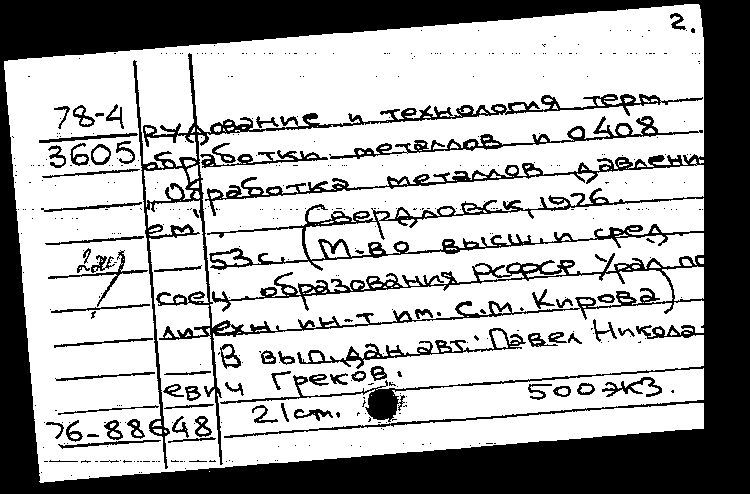 2.
78-4 рудование и технология терм.
3605 обработки металлов и 0408
"Обработка металлов давлени-
ем". Свердловск, 1976.
53 с. (М-во высш. и сред.
2экз спец. образования РСФСР. Урал. по-
литехн. ин-т им. С.М. Кирова)
В вып. дан. авт.: Павел Никола-
евич Греков.
21 cm. 500 экз.
76-88648